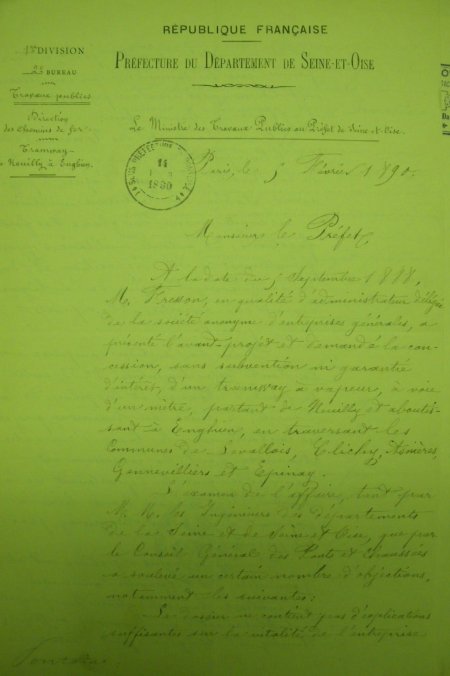 RÉPUBLIQUE FRANÇAISE
1re DIVISION
2e BUREAU
PRÉFECTURE DU DÉPARTEMENT DE SEINE-ET-OISE
Travaux publics
Direction
des Chemins de fer
Tramway
de Neuilly à Enghien
Le Ministre des Travaux Publics au Préfet de Seine-et-Oise.
11
1890
Paris, le 5 Février 1890.
Monsieur le Préfet,
A la date du 5 Septembre 1888,
M. Fresson, en qualité d'administrateur délégué
de la société anonyme d'entreprises générales, a
présenté l'avant-projet et demandé la con-
cession, sans subvention ni garantie
d'intérêt, d'un tramway à vapeur, à voie
d'un mètre, partant de Neuilly et aboutis-
sant à Enghien, en traversant les
Communes de Levallois, Clichy, Asnières,
Gennevilliers et Epinay.
L'examen de l'affaire, tant par
M.M. les Ingénieurs des départements
de la Seine et de Seine et Oise, que par
le Conseil Général des Ponts et Chaussées
a soulevé un certain nombre d'objections,
notamment les suivantes:
Le dossier ne contient pas d'explications
suffisantes sur l'utilité de l'entreprise